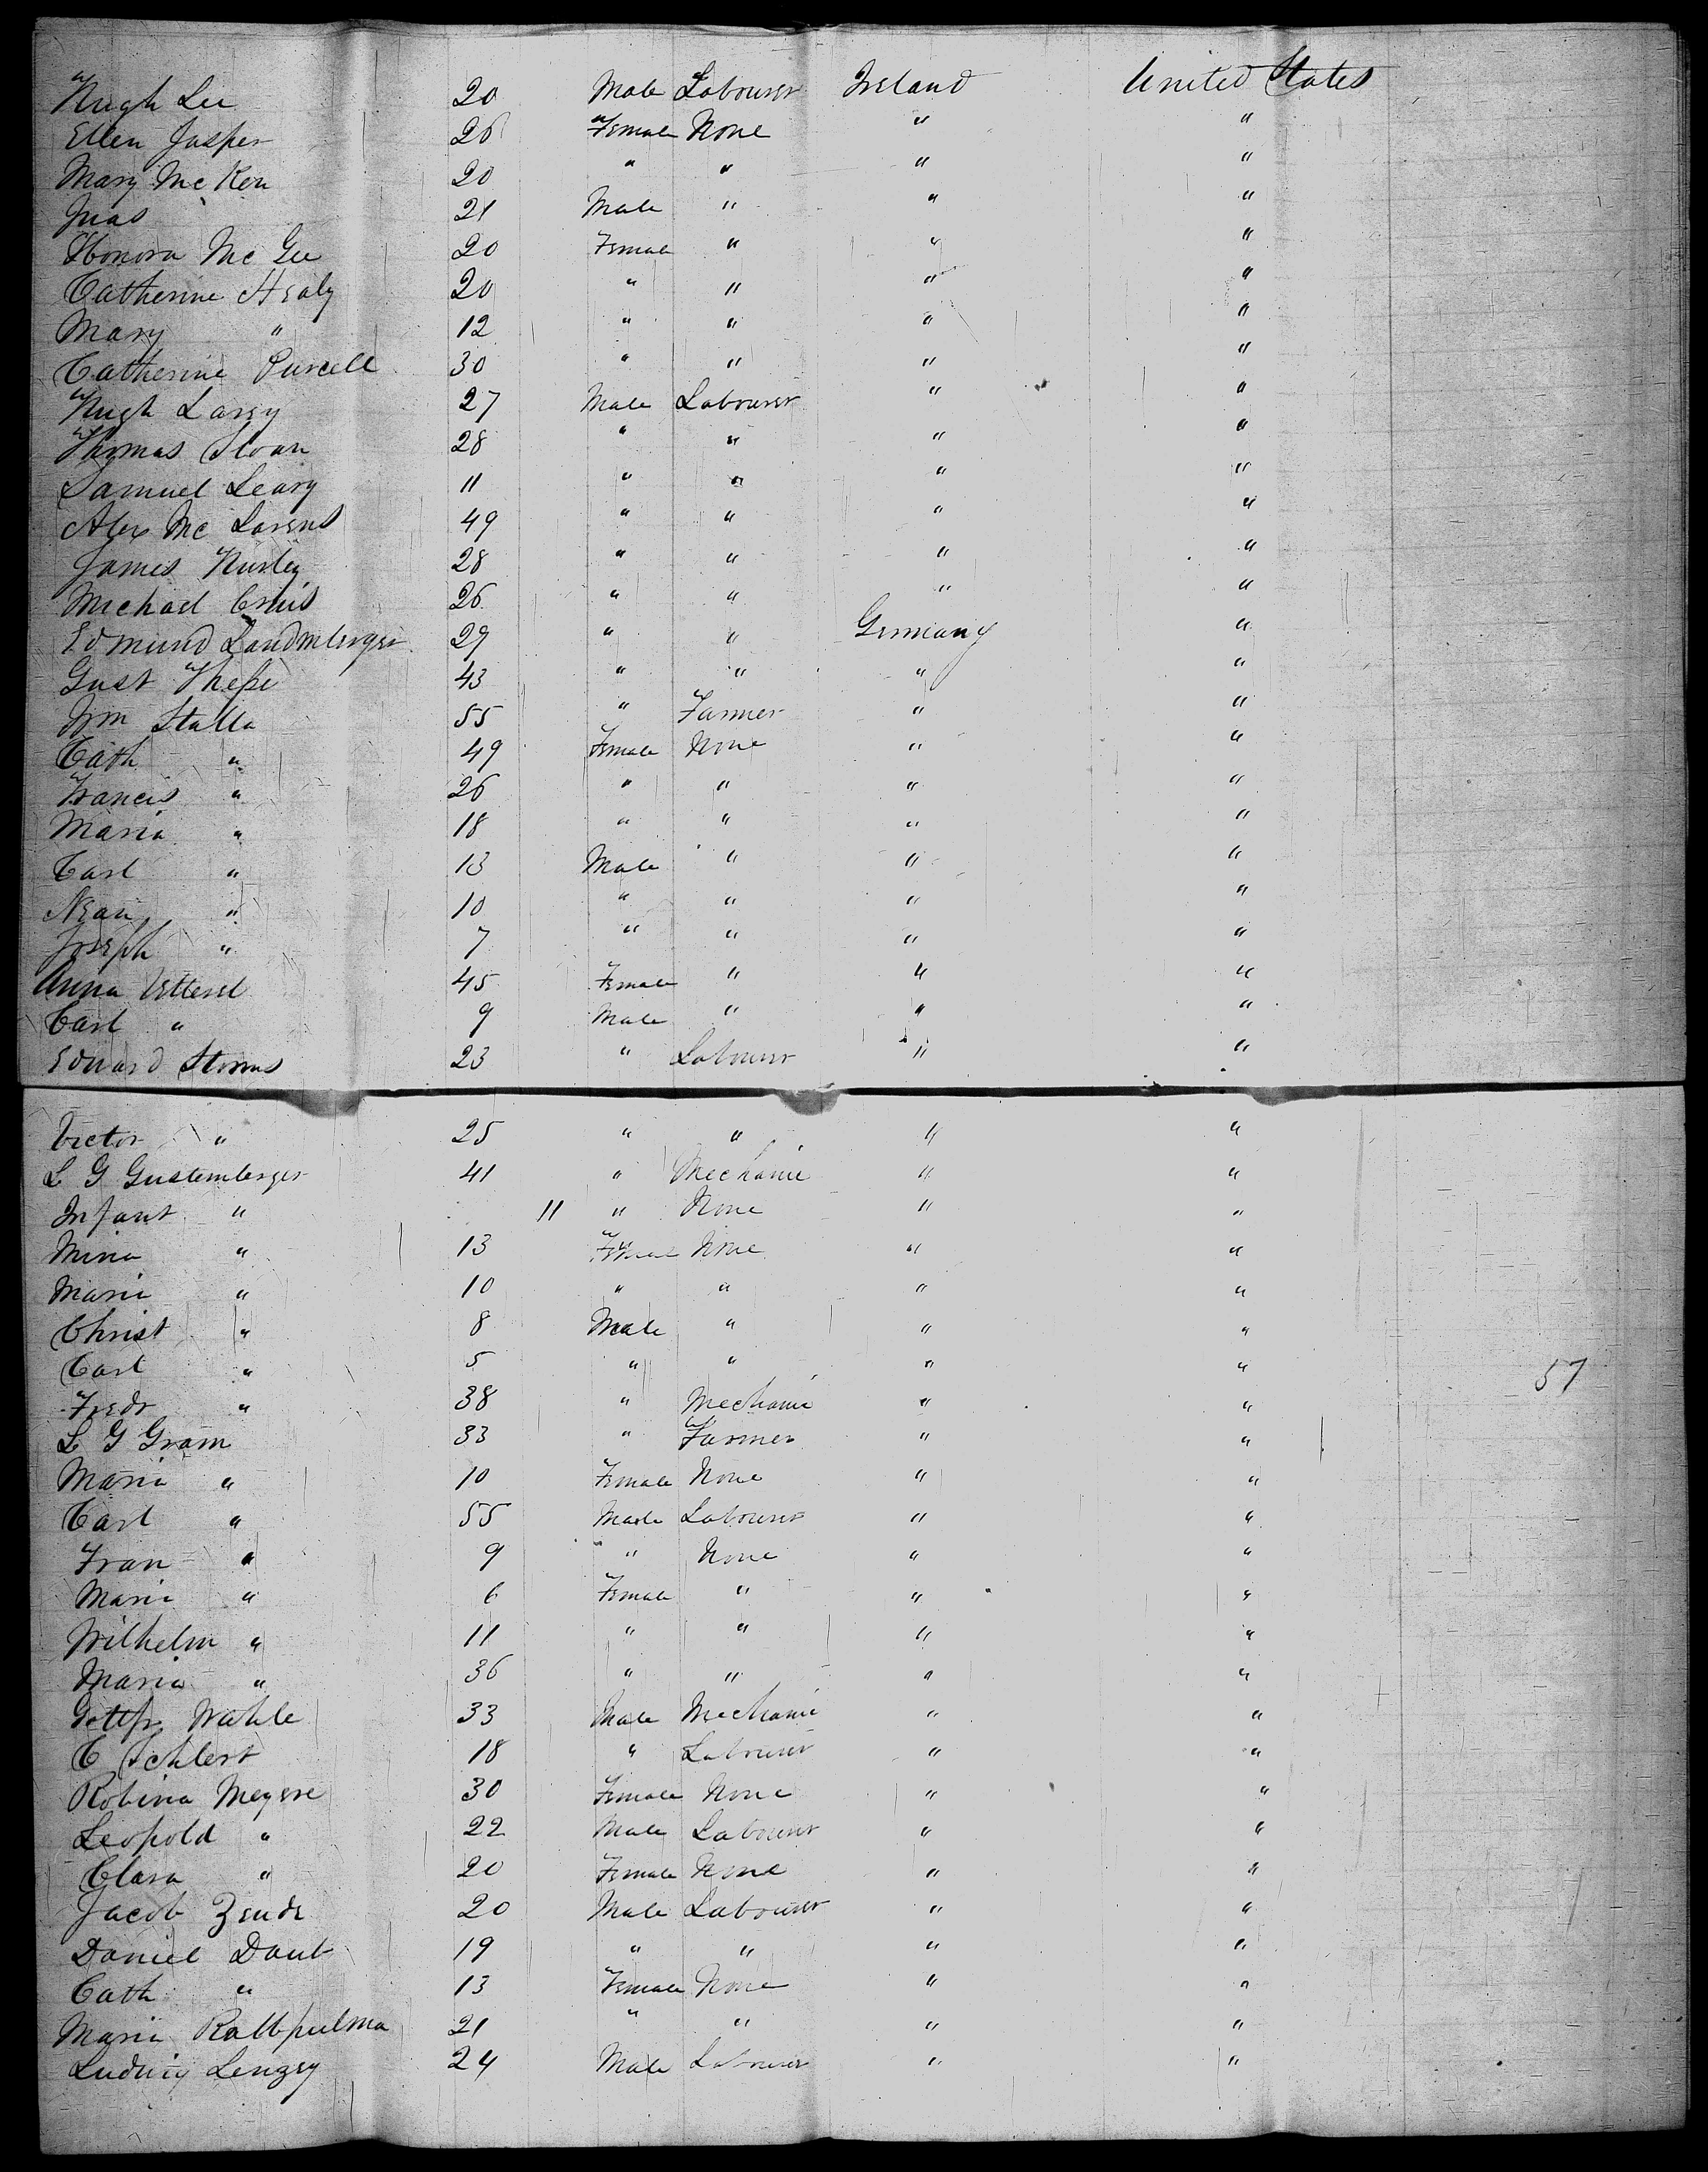 Hugh Lee 20 Male Labourer Ireland United States
Ellen Jasper 26 Female None " "
Mary McKen 20 " " " "
Jnas 21 Male " " "
Honora McGee 20 Female " " "
Catherine Healy 20 " " " "
Mary " 12 " " " "
Catherine Purcell 30 " " " "
Hugh Larey 27 Male Labourer " "
Thomas Sloan 28 " " " "
Samuel Leary 11 " " " "
Alex Mc Larens 49 " " " "
James Hurley 28 " " " "
Michael 26 " " " "
Edmund Landmberger 29 " " Germany "
Gust 43 " " " "
Wm Stalla 55 " Farmer " "
Cath " 49 Female None " "
Francis " 26 " " " "
Maria " 18 " " " "
Carl " 13 Male " " "
" 10 " " " "
Joseph " 7 " " " "
Anna Vetterel 45 Female " " "
Carl " 9 Male " " "
Edward Storms 23 " Labourer " "
Victor " 25 " " " "
L G Gustemberger 41 " Mechanic " "
Infant " 11 " None " "
Mina " 13 Female None " "
Maria " 10 " " " "
Christ " 8 Male " " "
Carl " 5 " " " "
57
Fredr " 38 " Mechanic " "
L G Gram 33 " Farmer " "
Maria " 10 Female None " "
Carl " 55 Male Labourer " "
Fran " 9 " None " "
Maria " 6 Female " " "
Wilhelm " 11 " " " "
Maria " 36 " " " "
Gottfr Wahle 33 Male Mechanic " "
C Schlert 18 " Labourer " "
Robina Meyere 30 Female None " "
Leopold " 22 Male Labourer " "
Clara " 20 Female None " "
Jacob Zeude 20 Male Labourer " "
Daniel Daub 19 " " " "
Cath " 13 Female None " "
Maria 21 " " " "
Ludwig Lengey 24 Male Labourer " "